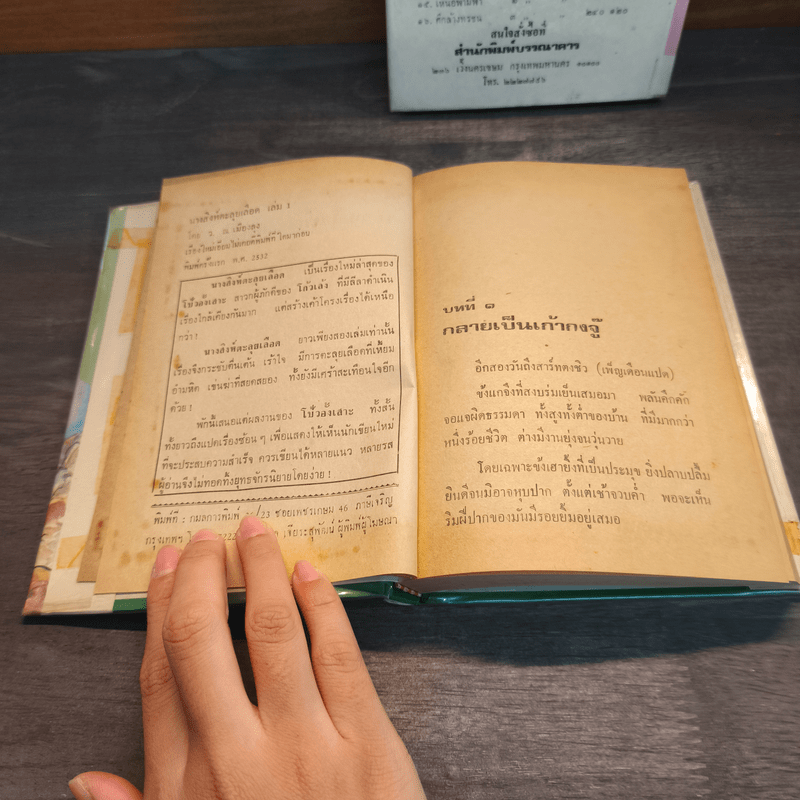 ๑๕. เหนือพิมพ์พา
๑๖. ศึกล้างทรชน ๓ " ๒๔๐ ๑๒๐
สนใจสั่งซื้อที่
สำนักพิมพ์บรรณาคาร
๒๓๖ เวิ้งนครเขษม กรุงเทพมหานคร ๑๐๑๐๐
โทร. ๒๒๒๗๗๙๖
นางสิงห์ตะลุยเลือด เล่ม 1
โดย ว. ณ เมืองลุง
เรื่องใหม่เขียนไม่เคยตีพิมพ์ที่ใดมาก่อน
พิมพ์ครั้งแรก พ.ศ. 2532
นางสิงห์ตะลุยเลือด เป็นเรื่องใหม่ล่าสุดของ
โป้วอั้งเสาะ สาวกผู้ภักดีของ โกวเล้ง ที่มีลีลาดำเนิน
เรื่องใกล้เคียงกันมาก แต่สร้างเค้าโครงเรื่องได้เหนือ
กว่า!
นางสิงห์ตะลุยเลือด ยาวเพียงสองเล่มเท่านั้น
เรื่องจึงกระชับตื่นเต้น เร้าใจ มีการตะลุยเลือดที่เหี้ยม
อำมหิต เข่นฆ่าที่สยดสยอง ทั้งยังมีเศร้าสะเทือนใจอีก
ด้วย!
พักนี้เสนอแต่ผลงานของ โป้วอั้งเสาะ ทั้งสั้น
ทั้งยาวถึงแปดเรื่องซ้อน ๆ เพื่อแสดงให้เห็นนักเขียนใหม่
ที่จะประสบความสำเร็จ ควรเขียนได้หลายแนว หลายรส
ผู้อ่านจึงไม่ทอดทิ้งยุทธจักรนิยายโดยง่าย!
พิมพ์ที่ : กมลการพิมพ์ /23 ซอยเพชรเกษม 46 ภาษีเจริญ
กรุงเทพฯ เจียระสุพัฒน์ ผู้พิมพ์ผู้โฆษณา
บทที่ ๑
กลายเป็นเก้ากงจู๊
อีกสองวันถึงสาร์ทตงชิว (เพ็ญเดือนแปด)
ซังแกจึงที่สงบร่มเย็นเสมอมา พลันคึกคัก
จอแจผิดธรรมดา ทั้งสูงทั้งต่ำของบ้าน ที่มีมากกว่า
หนึ่งร้อยชีวิต ต่างมีงานยุ่งจนวุ่นวาย
โดยเฉพาะซังเฮายี้ที่เป็นประมุข ยิ่งปลาบปลื้ม
ยินดีจนมิอาจหุบปาก ตั้งแต่เช้าจวบค่ำ พอจะเห็น
ริมฝีปากของมันมีรอยยิ้มอยู่เสมอ